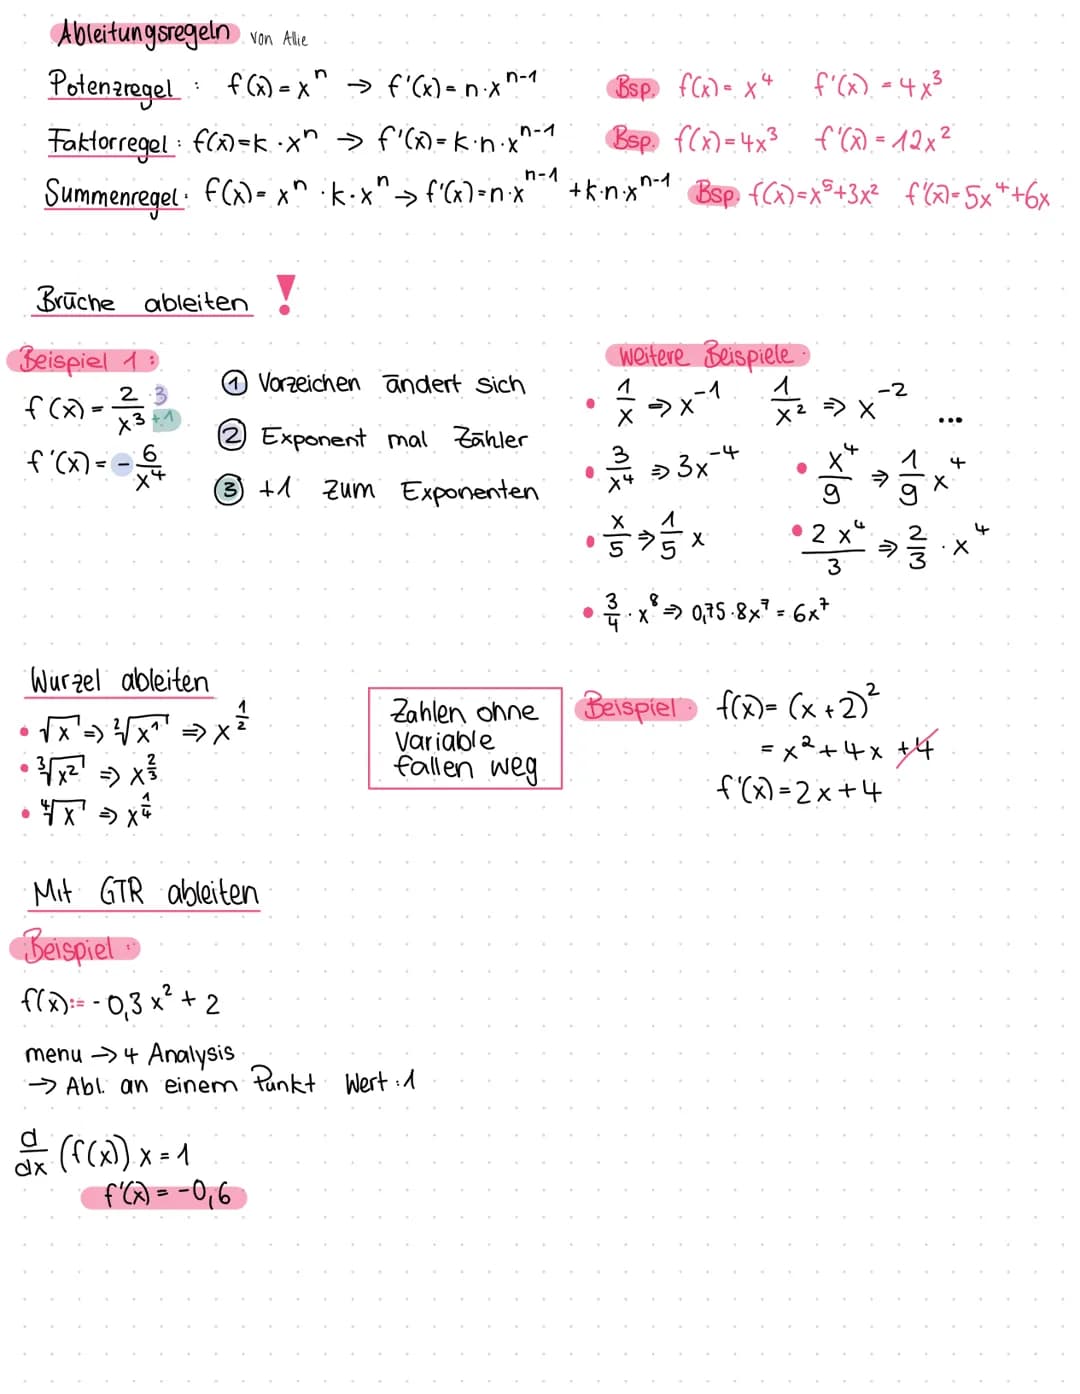 Ableitungsregeln von Allie
Potenzregel : f(x) = xⁿ → f'(x) = n·xⁿ⁻¹ Bsp. f(x) = x⁴ f'(x) = 4x³
Faktorregel : f(x) = k·xⁿ → f'(x) = k·n·xⁿ⁻¹ Bsp. f(x) = 4x³ f'(x) = 12x²
Summenregel : f(x) = xⁿ · k·xⁿ → f'(x) = n·xⁿ⁻¹ + k·n·xⁿ⁻¹ Bsp. f(x) = x⁵+3x² f'(x) = 5x⁴+6x
Brüche ableiten !
Beispiel 1 :
f(x) = 2/x³ ·3 +1
f'(x) = - 6/x⁴
① Vorzeichen ändert sich
② Exponent mal Zähler
③ +1 zum Exponenten
weitere Beispiele :
• 1/x ⇒ x⁻¹ 1/x² ⇒ x⁻² ...
• 3/x⁴ ⇒ 3x⁻⁴ • x⁴/9 ⇒ 1/9 x⁴
• x/5 ⇒ 1/5 x • 2x⁴/3 ⇒ 2/3 · x⁴
• 3/4 · x⁸ ⇒ 0,75·8x⁷ = 6x⁷
Wurzel ableiten
• √x ⇒ ²√x¹ ⇒ x^(1/2)
• ³√x² ⇒ x^(2/3)
• ⁴√x ⇒ x^(1/4)
Zahlen ohne
Variable
fallen weg
Beispiel : f(x) = (x+2)²
= x² + 4x + 4
f'(x) = 2x + 4
Mit GTR ableiten
Beispiel :
f(x) := -0,3x² + 2
menu → 4 Analysis
→ Abl. an einem Punkt Wert : 1
d/dx (f(x)) x = 1
f'(x) = -0,6